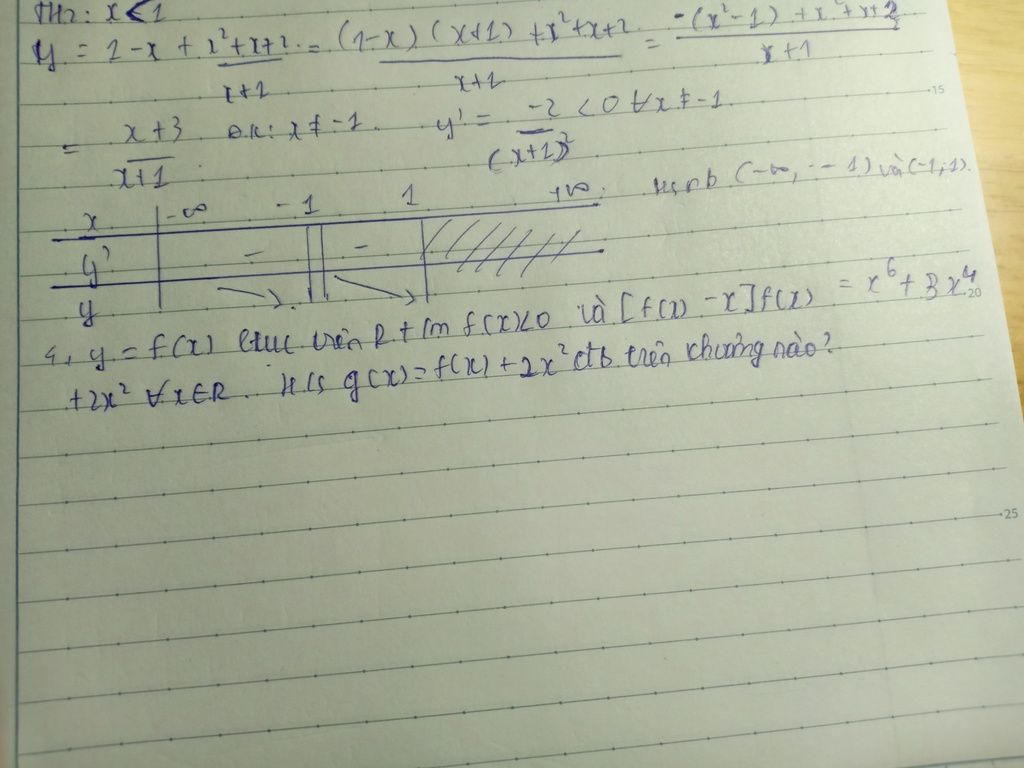 TH2: x < 1
y = 1 - x + (x² + x + 2)/(x + 1) = ((1 - x)(x + 1) + x² + x + 2)/(x + 1) = (-(x² - 1) + x² + x + 2)/(x + 1)
= (x + 3)/(x + 1) ĐK: x ≠ -1. y' = -2/(x + 1)² < 0 ∀x ≠ -1.
Hs nb (-∞; -1) và (-1; 1).
x -∞ -1 1 +∞
y' - -
y
4, y = f(x) ltục trên R t/m f(x) < 0 và [f(x) - x]f(x) = x⁶ + 3x⁴
+ 2x² ∀x∈R. H/s g(x) = f(x) + 2x² đb trên khoảng nào?
15
20
25